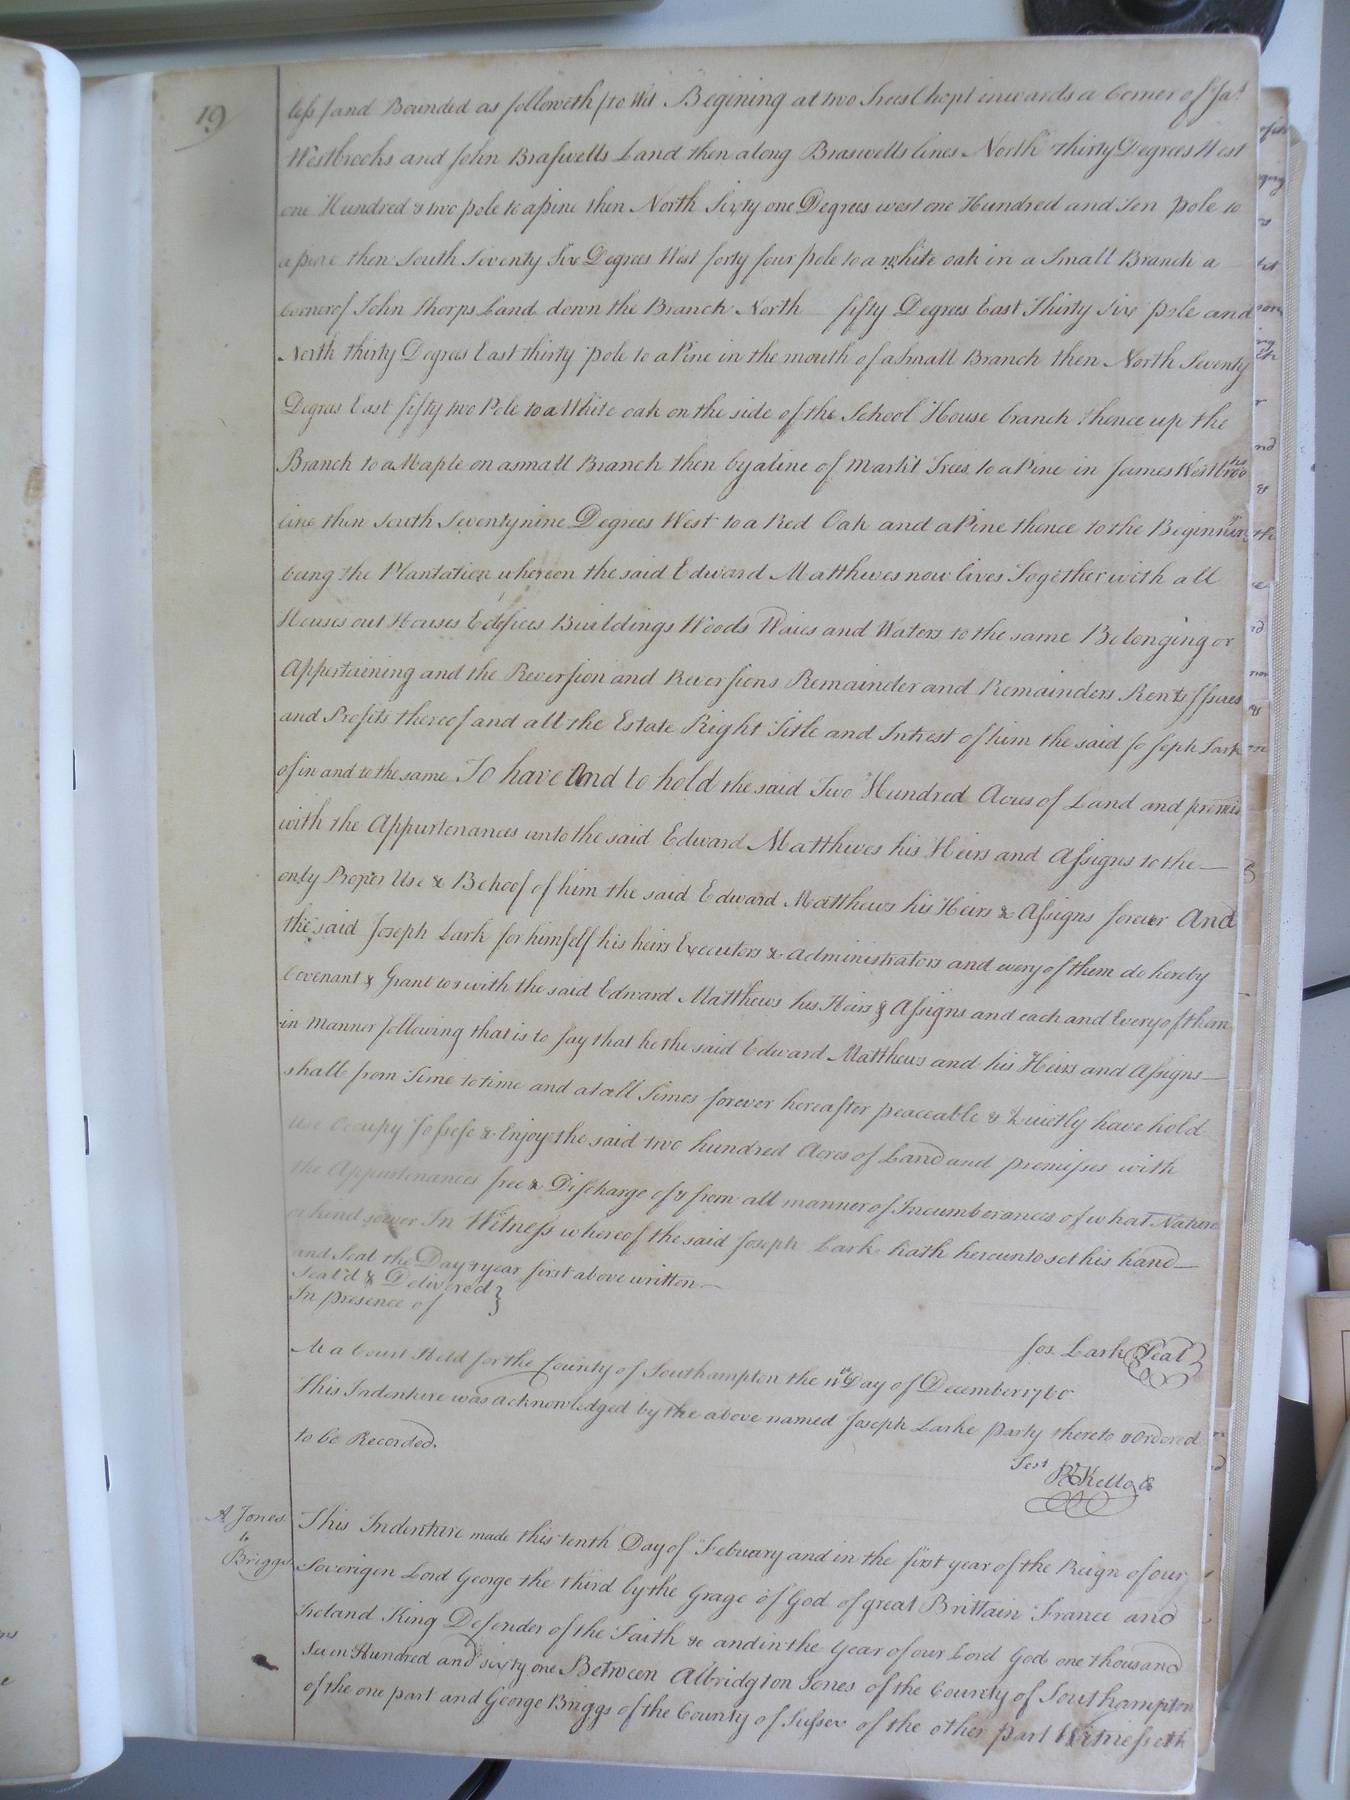 19
less) and Bounded as followeth (to Wit Begining at two Trees Chopt inwards a Corner of Jas
Westbrooks and John Braswells Land then along Braswells lines North thirty Degrees West
one Hundred & two pole to a pine then North Sixty one Degrees west one Hundred and Ten pole to
a pine then South Seventy Six Degrees West forty four pole to a white oak in a Small Branch a
Corner of John Thorps Land down the Branch North fifty Degrees East Thirty Six pole and
North thirty Degrees East thirty pole to a Pine in the mouth of a Small Branch then North Seventy
Degrees East fifty two Pole to a White oak on the side of the School House branch thence up the
Branch to a Maple on a small Branch then by a line of Markt Trees to a Pine in James Westbrooks
line then South Seventy nine Degrees West to a Red Oak and a Pine thence to the Beginning
being the Plantation whereon the said Edward Matthews now lives Together with all
Houses out Houses Edefices Buildings Woods Waies and Waters to the same Belonging or
Appertaining and the Reversion and Reversions Remainder and Remainders Rents Issues
and Profits thereof and all the Estate Right Title and Intrest of him the said Joseph Lark
of in and to the same To have And to hold the said Two Hundred Acres of Land and premis
with the Appurtenances unto the said Edward Matthews his Heirs and Assigns to the
only Proper Use & Behoof of him the said Edward Matthews his Heirs & Assigns forever And
the said Joseph Lark for himself his heirs Executors & administrators and every of them do hereby
Covenant & Grant to & with the said Edward Matthews his Heirs & Assigns and each and Every of them
in Manner following that is to say that he the said Edward Matthews and his Heirs and Assigns
shall from Time to time and at all Times forever hereafter peaceable & Quietly have hold
use Occupy Possess & Enjoy the said two hundred Acres of Land and premisses with
the Appurtenances free & Discharge of & from all manner of Incumberances of what Nature
or kind soever In Witness whereof the said Joseph Lark hath hereunto set his hand
and Seal the Day & year first above written
Seal'd & Delivered }
In presence of
Jos. Lark Seal
At a Court Held for the County of Southampton the 11th Day of December 1760
This Indenture was acknowledged by the above named Joseph Larke party thereto & Ordered
to be Recorded.
Test
Rd Kello
A Jones
to
Briggs
This Indenture made this tenth Day of Febuary and in the first year of the Reign of our
Soverigen Lord George the third by the Grage of God of great Brittain France and
Ireland King Defender of the Faith &c and in the year of our Lord God one thousand
Seven Hundred and sixty one Between Albridgton Jones of the County of Southampton
of the one part and George Briggs of the County of Sussex of the other part Witnesseth